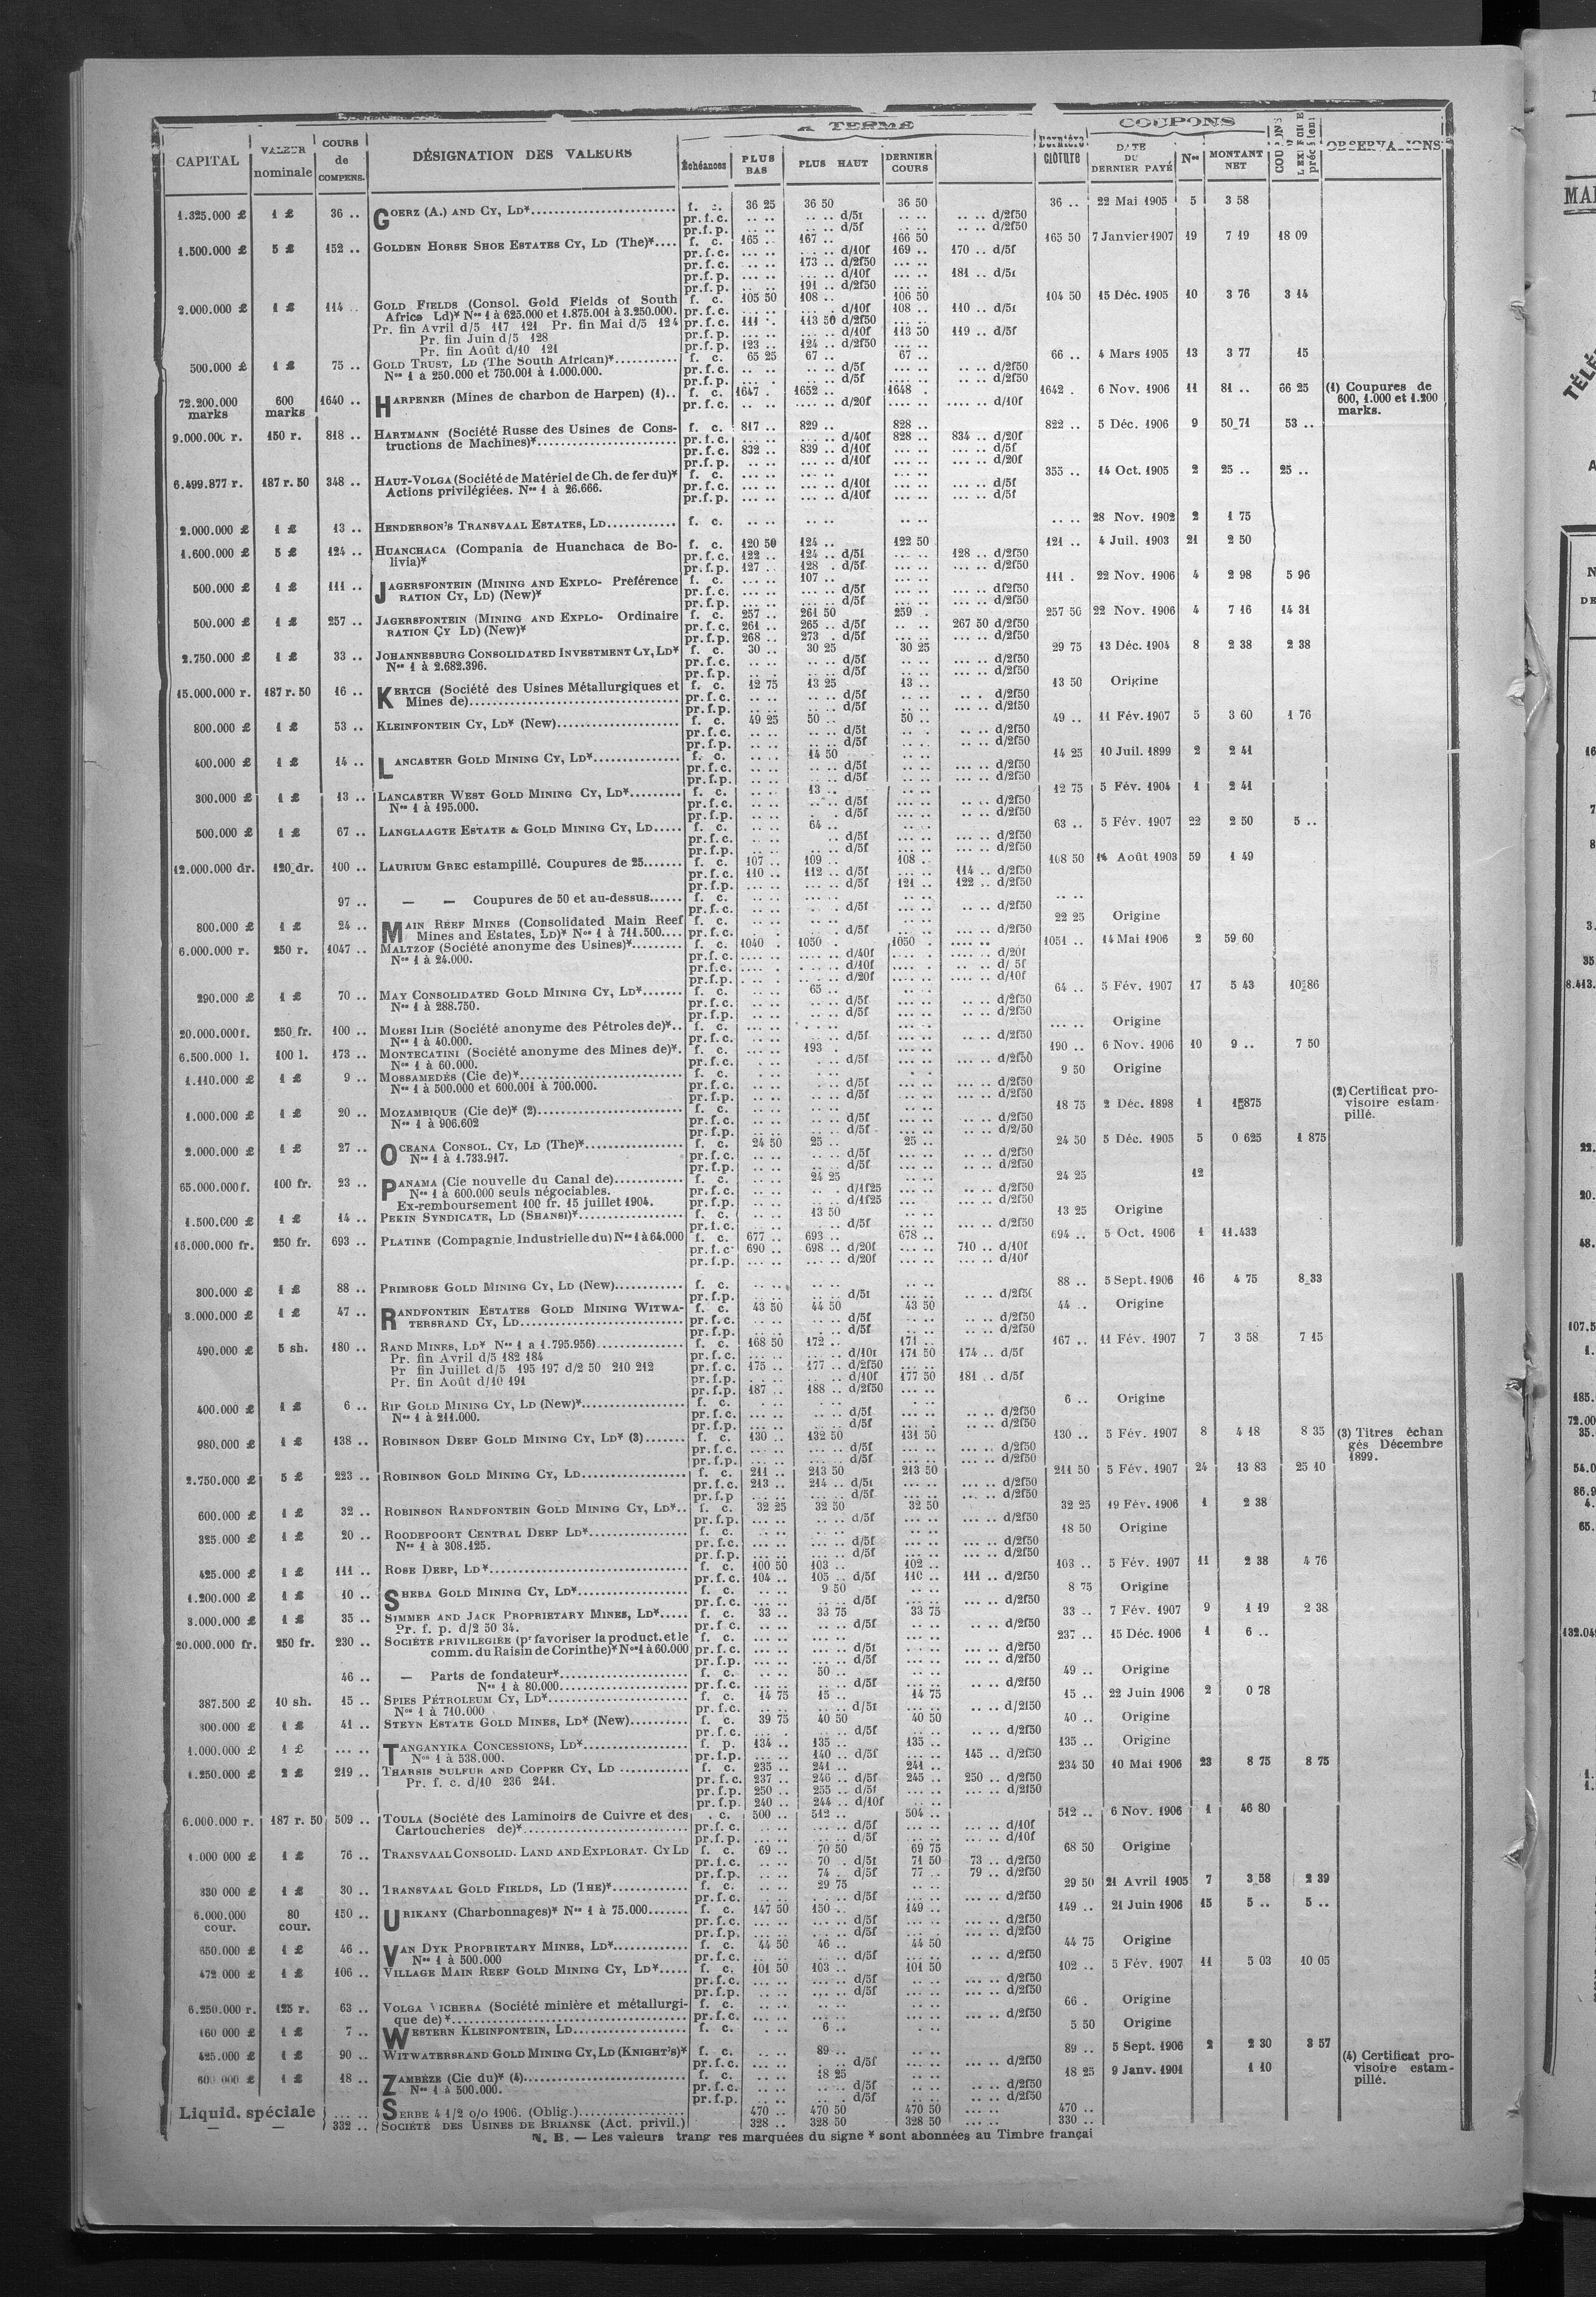 A TERME
COUPONS
CAPITAL VALEUR nominale COURS de COMPENS. DÉSIGNATION DES VALEURS Échéances PLUS BAS PLUS HAUT DERNIER COURS Dernière clôture DATE DU DERNIER PAYÉ Nos MONTANT NET OBSERVATIONS
1.325.000 £ 1 £ 36 .. GOERZ (A.) AND CY, LD*.... f. c. 36 25 36 50 36 50 36 .. 22 Mai 1905 5 3 58
pr.f.c. .. .. .. .. d/5f .. .. .. .. d/2f50
pr.f.p. .. .. d/5f .. .. d/2f50
1.500.000 £ 5 £ 152 .. GOLDEN HORSE SHOE ESTATES CY, LD (The)*.... f. c. 165 .. 167 .. 166 50 165 50 7 Janvier 1907 19 7 19 18 09
pr.f.c. ... .. ... .. d/10f 169 .. 170 .. d/5f
pr.f.c. .. .. 173 .. d/2f50 ... ..
pr.f.p. ... .. ... .. d/10f ... .. 181 .. d/5f
pr.f.p. .. .. 191 .. d/2f50 ... ..
2.000.000 £ 1 £ 114 .. GOLD FIELDS (Consol. Gold Fields of South f. c. 105 50 108 .. 106 50 104 50 15 Déc. 1905 10 3 76 3 14
Africa Ld)* Nos 1 à 625.000 et 1.875.001 à 3.250.000. pr.f.c. ... .. ... .. d/10f 108 .. 110 .. d/5f
Pr. fin Avril d/5 117 121 Pr. fin Mai d/5 124 pr.f.c. 111 .. 113 50 d/2f50 ... ..
Pr. fin Juin d/5 128 pr.f.p. ... .. ... .. d/10f 113 50 119 .. d/5f
Pr. fin Août d/10 121 pr.f.p. 123 .. 124 .. d/2f50 ... ..
500.000 £ 1 £ 75 .. GOLD TRUST, LD (The South African)*.... f. c. 65 25 67 .. 67 .. 66 .. 4 Mars 1905 13 3 77 15
Nos 1 à 250.000 et 750.001 à 1.000.000. pr.f.c. .. .. .. .. d/5f .. .. .. .. d/2f50
pr.f.p. ... .. d/5f .. .. d/2f50
72.200.000 marks 600 marks 1640 .. HARPENER (Mines de charbon de Harpen) (1).. f. c. 1647 . 1652 .. 1648 . 1642 . 6 Nov. 1906 11 81 .. 66 25 (1) Coupures de 600, 1.000 et 1.200 marks.
pr.f.c. .. .. .... .. d/20f .... .. .... .. d/10f
9.000.000 r. 150 r. 818 .. HARTMANN (Société Russe des Usines de Cons- f. c. 817 .. 829 .. 828 .. 822 .. 5 Déc. 1906 9 50 71 53 ..
tructions de Machines)*.... pr.f.c. ... .. ... .. d/40f 828 .. 834 .. d/20f
pr.f.c. 832 .. 839 .. d/10f ... .. ... .. d/5f
pr.f.p. ... .. ... .. d/10f ... .. ... .. d/20f
6.499.877 r. 187 r. 50 348 .. HAUT-VOLGA (Société de Matériel de Ch. de fer du)* f. c. ... .. ... .. ... .. 355 .. 14 Oct. 1905 2 25 .. 25 ..
Actions privilégiées. Nos 1 à 26.666. pr.f.c. ... .. ... .. d/10f ... .. ... .. d/5f
pr.f.p. ... .. ... .. d/10f ... .. ... .. d/5f
2.000.000 £ 1 £ 13 .. HENDERSON'S TRANSVAAL ESTATES, LD.... f. c. .. .. .. .. .. .. .. .. 28 Nov. 1902 2 1 75
1.600.000 £ 5 £ 124 .. HUANCHACA (Compania de Huanchaca de Bo- f. c. 120 50 124 .. 122 50 121 .. 4 Juil. 1903 21 2 50
livia)* pr.f.c. 122 .. 124 .. d/5f ... .. 128 .. d/2f50
pr.f.p. 127 .. 128 .. d/5f ... .. ... .. d/2f50
500.000 £ 1 £ 111 .. JAGERSFONTEIN (MINING AND EXPLO- Préférence f. c. ... .. 107 .. ... .. 111 . 22 Nov. 1906 4 2 98 5 96
RATION CY, LD) (New)* pr.f.c. ... .. ... .. d/5f ... .. ... .. d/2f50
pr.f.p. ... .. ... .. d/5f ... .. ... .. d/2f50
500.000 £ 1 £ 257 .. JAGERSFONTEIN (MINING AND EXPLO- Ordinaire f. c. 257 .. 261 50 259 .. 257 50 22 Nov. 1906 4 7 16 14 31
RATION CY LD) (New)* pr.f.c. 261 .. 265 .. d/5f .. .. 267 50 d/2f50
pr.f.p. 268 .. 273 . d/5f ... .. ... .. d/2f50
2.750.000 £ 1 £ 33 .. JOHANNESBURG CONSOLIDATED INVESTMENT CY, LD* f. c. 30 .. 30 25 30 25 29 75 13 Déc. 1904 8 2 38 2 38
Nos 1 à 2.682.396. pr.f.c. .. .. .. .. d/5f .. .. .. .. d/2f50
pr.f.p. .. .. .. .. d/5f .. .. .. .. d/2f50
15.000.000 r. 187 r. 50 16 .. KERTCH (Société des Usines Métallurgiques et f. c. 12 75 13 25 13 .. 13 50 Origine
Mines de).... pr.f.c. .. .. .. .. d/5f .. .. .. . d/2f50
pr.f.p. .. .. .. .. d/5f .. .. .. .. d/2f50
800.000 £ 1 £ 53 .. KLEINFONTEIN CY, LD* (New).... f. c. 49 25 50 .. 50 .. 49 .. 11 Fév. 1907 5 3 60 1 76
pr.f.c. .. .. .. .. d/5f .. . .. .. d/2f50
pr.f.p. .. .. .. .. d/5f .. .. .. .. d/2f50
400.000 £ 1 £ 14 .. LANCASTER GOLD MINING CY, LD*.... f. c. .. .. 14 50 .. .. 14 25 10 Juil. 1899 2 2 41
pr.f.c. .. .. .. .. d/5f .. .. ... .. d/2f50
pr.f.p. .. .. .. .. d/5f ... .. ... .. d/2f50
300.000 £ 1 £ 13 .. LANCASTER WEST GOLD MINING CY, LD*.... f. c. .. .. 13 .. .. .. 12 75 5 Fév. 1904 1 2 41
Nos 1 à 195.000. pr.f.c. .. .. .. .. d/5f ... .. .. .. d/2f50
pr.f.p. .. .. d/5f .. .. d/2f50
500.000 £ 1 £ 67 .. LANGLAAGTE ESTATE & GOLD MINING CY, LD..... f. c. .. .. 64 .. .. .. 63 .. 5 Fév. 1907 22 2 50 5 ..
pr.f.c. .. .. d/5f .. .. ... .. d/2f50
pr.f.p. .. .. ... .. d/5f .. .. ... .. d/2f50
12.000.000 dr. 120 dr. 100 .. LAURIUM GREC estampillé. Coupures de 25....... f. c. 107 .. 109 .. 108 .. 108 50 Août 1903 59 1 49
pr.f.c. 110 .. 112 .. d/5f ... .. 114 .. d/2f50
pr.f.p. ... .. ... .. d/5f 121 .. 122 .. d/2f50
97 .. — — Coupures de 50 et au-dessus...... f. c. .. .. .. .. .. .. .. ..
pr.f.c. .. .. d/5f ... .. ... .. d/2f50
800.000 £ 1 £ 24 .. MAIN REEF MINES (Consolidated Main Reef f. c. .. .. .. .. .. .. 22 25 Origine
Mines and Estates, LD)* Nos 1 à 711.500.... pr.f.c. .. .. d/5f ... .. ... .. d/2f50
6.000.000 r. 250 r. 1047 .. MALTZOF (Société anonyme des Usines)*.... f. c. 1040 . 1050 . 1050 . .... .. 1051 .. 14 Mai 1906 2 59 60
Nos 1 à 24.000. pr.f.c. .... .. .... .. d/40f .... .. .... .. d/20f
pr.f.c. .... . ... .. d/10f .... .. .. .. d/ 5f
pr.f.p. ... .. d/20f .... .. .... .. d/10f
290.000 £ 1 £ 70 .. MAY CONSOLIDATED GOLD MINING CY, LD*....... f. c. .. .. 65 .. .. .. 64 .. 5 Fév. 1907 17 5 43 10 86
Nos 1 à 288.750. pr.f.c. .. .. ... .. d/5f ... .. ... .. d/2f50
pr.f.p. .. .. ... .. d/5f ... .. ... .. d/2f50
20.000.000 f. 250 fr. 100 .. MOESI ILIR (Société anonyme des Pétroles de)*.. f. c. ... .. Origine
Nos 1 à 40.000. pr.f.c. ... .. d/5f ... .. ... .. d/2f50
6.500.000 l. 100 l. 173 .. MONTECATINI (Société anonyme des Mines de)*. f. c. ... .. 193 . ... .. 190 .. 6 Nov. 1906 10 9 .. 7 50
Nos 1 à 60.000. pr.f.c. .. .. d/5f ... .. ... .. d/2f50
1.110.000 £ 1 £ 9 .. MOSSAMEDÈS (Cie de)*.... f. c. 9 50 Origine
Nos 1 à 500.000 et 600.001 à 700.000. pr.f.c. .. .. .. .. d/5f .. .. ... .. d/2f50
pr.f.p. .. .. .. .. d/5f ... .. ... .. d/2f50 (2) Certificat pro-
1.000.000 £ 1 £ 20 .. MOZAMBIQUE (Cie de)* (2).... f. c. .. .. .. .. .. .. 18 75 2 Déc. 1898 1 visoire estam-
Nos 1 à 906.602 pr.f.c. .. .. ... .. d/5f .. .. ... .. d/2f50 pillé.
pr.f.p. .. .. ... .. d/5f .. .. ... .. d/2/50
2.000.000 £ 1 £ 27 .. OCEANA CONSOL. CY, LD (The)*.... f. c. 24 50 25 .. 25 .. 24 50 5 Déc. 1905 5 0 625 1 875
Nos 1 à 1.733.917. pr.f.c. .. .. ... .. d/5f .. .. ... .. d/2f50
pr.f.p. .. .. .. .. d/5f .. .. ... .. d/2f50
65.000.000 f. 100 fr. 23 .. PANAMA (Cie nouvelle du Canal de).... f. c. .. .. 24 25 .. .. 24 25 12
Nos 1 à 600.000 seuls négociables. pr.f.c. .. .. .. . d/1f25 ... .. .. .. d/2f50
Ex-remboursement 100 fr. 15 juillet 1904. pr.f.p. .. .. .. .. d/1f25 ... .. .. .. d/2f50
1.500.000 £ 1 £ 14 .. PEKIN SYNDICATE, LD (SHANSI)*.... f. c. .. .. 13 50 .. .. 13 25 Origine
pr.f.c. .. .. .. .. d/5f .. .. ... .. d/2f50
16.000.000 fr. 250 fr. 693 .. PLATINE (Compagnie Industrielle du) Nos 1 à 64.000 f. c. 677 .. 693 .. 678 .. 694 .. 5 Oct. 1906 1 11.433
pr.f.c. 690 .. 698 .. d/20f ... .. 710 .. d/10f
pr.f.p. ... .. ... .. d/20f ... .. ... .. d/10f
300.000 £ 1 £ 88 .. PRIMROSE GOLD MINING CY, LD (New).... f. c. .. .. .. .. .. .. 88 .. 5 Sept. 1906 16 4 75 8 33
pr.f.p. .. .. .. .. d/5f .. .. .. .. d/2f50
3.000.000 £ 1 £ 47 .. RANDFONTEIN ESTATES GOLD MINING WITWA- f. c. 43 50 44 50 43 50 44 .. Origine
TERSRAND CY, LD.... pr.f.c. .. .. ... .. d/5f .. .. ... .. d/2f50
pr.f.p. .. .. .. .. d/5f ... .. ... .. d/2f50
490.000 £ 5 sh. 180 .. RAND MINES, LD* Nos 1 a 1.795.956).... f. c. 168 50 172 .. 171 .. 167 .. 11 Fév. 1907 7 3 58 7 15
Pr. fin Avril d/5 182 184 pr.f.c. ... .. ... .. d/10f 171 50 174 .. d/5f
Pr fin Juillet d/5 195 197 d/2 50 210 212 pr.f.c. 175 .. 177 .. d/2f50 ... ..
Pr. fin Août d/10 191 pr.f.p. .. .. .. .. d/10f 177 50 181 .. d/5f
pr.f.p. 187 .. 188 .. d/2f50 ... ..
400.000 £ 1 £ 6 .. RIP GOLD MINING CY, LD (New)*.... f. c. 6 .. Origine
Nos 1 à 211.000. pr.f.c. ... .. ... .. d/5f ... .. .. .. d/2f50
pr.f.p. ... .. ... .. d/5f ... .. .. .. d/2f50
980.000 £ 1 £ 138 .. ROBINSON DEEP GOLD MINING CY, LD* (3)....... f. c. 130 .. 132 50 131 50 130 .. 5 Fév. 1907 8 4 18 8 35 (3) Titres échan
pr.f.c. ... .. ... .. d/5f ... .. ... .. d/2f50 gés Décembre
pr.f.p. ... .. ... .. d/5f ... .. ... .. d/2f50 1899.
2.750.000 £ 5 £ 223 .. ROBINSON GOLD MINING CY, LD.... f. c. 211 .. 213 50 213 50 211 50 5 Fév. 1907 24 13 83 25 10
pr.f.c. 213 .. 214 .. d/5f ... .. ... .. d/2f50
pr.f.p ... .. ... .. d/5f ... .. ... .. d/2f50
600.000 £ 1 £ 32 .. ROBINSON RANDFONTEIN GOLD MINING CY, LD*.. f. c. 32 25 32 50 32 50 32 25 19 Fév. 1906 1 2 38
pr.f.p. ... .. ... .. d/5f ... .. d/2f50
325.000 £ 1 £ 20 .. ROODEPOORT CENTRAL DEEP LD*.... f. c. 18 50 Origine
Nos 1 à 308.125. pr.f.c. ... .. ... .. d/5f ... .. ... .. d/2f50
pr.f.p. ... .. ... .. d/5f ... .. ... .. d/2f50
425.000 £ 1 £ 111 .. ROSE DEEP, LD*.... f. c. 100 50 103 .. 102 .. 103 .. 5 Fév. 1907 11 2 38 4 76
pr.f.c. 104 .. 105 .. d/5f 110 .. 111 .. d/2f50
1.200.000 £ 1 £ 10 .. SHEBA GOLD MINING CY, LD*.... f. c. .. .. 9 50 .. .. 8 75 Origine
pr.f.c. .. .. .. .. d/5f ... .. d/2f50
3.000.000 £ 1 £ 35 .. SIMMER AND JACK PROPRIETARY MINES, LD*..... f. c. 33 .. 33 75 33 75 33 .. 7 Fév. 1907 9 1 19 2 38
Pr. f. p. d/2 50 34. pr.f.c. .. .. .. .. d/5f .. .. ... .. d/2f50
20.000.000 fr. 250 fr. 230 .. SOCIÉTÉ PRIVILÉGIÉE (pr favoriser la product. et le f. c. ... .. ... .. ... .. 237 .. 15 Déc. 1906 1 6 ..
comm. du Raisin de Corinthe)* Nos 1 à 60.000 pr.f.c. ... .. ... .. d/5f ... .. ... .. d/2f50
pr.f.p. ... .. ... .. d/5f ... .. ... .. d/2f50
46 .. — Parts de fondateur*.... f. c. .. .. 50 .. .. .. 49 .. Origine
Nos 1 à 80.000.... pr.f.c. .. .. .. .. d/5f .. .. .. .. d/2f50
387.500 £ 10 sh. 15 .. SPIES PÉTROLEUM CY, LD*.... f. c. 14 75 15 .. 14 75 15 .. 22 Juin 1906 2 0 78
Nos 1 à 710.000 pr.f.c. .. .. .. .. d/5f .. .. .. .. d/2f50
300.000 £ 1 £ 41 .. STEYN ESTATE GOLD MINES, LD* (New).... f. c. 39 75 40 50 40 50 40 .. Origine
pr.f.c. ... . .. .. d/5f .. .. .. .. d/2f50
1.000.000 £ 1 £ ... .. TANGANYIKA CONCESSIONS, LD*.... f. p. 134 .. 135 .. 135 .. 135 .. Origine
Nos 1 à 538.000. pr.f.p. ... .. 140 .. d/5f ... .. 145 .. d/2f50
1.250.000 £ 2 £ 219 .. THARSIS SULFUR AND COPPER CY, LD .... f. c. 235 .. 241 .. 241 .. 234 50 10 Mai 1906 23 8 75 8 75
Pr. f. c. d/10 236 241. pr.f.c. 237 .. 246 .. d/5f 245 .. 250 .. d/2f50
pr.f.p. 250 .. 255 .. d/5f ... .. ... .. d/2f50
pr.f.p. 240 .. 244 .. d/10f .. ..
6.000.000 r. 187 r. 50 509 .. TOULA (Société des Laminoirs de Cuivre et des . c. 500 .. 512 .. 504 .. 512 .. 6 Nov. 1906 1 46 80
Cartoucheries de)*.... pr.f.c. ... .. ... .. d/5f ... .. ... .. d/10f
pr.f.p. ... .. ... .. d/5f ... .. ... .. d/10f
1.000 000 £ 1 £ 76 .. TRANSVAAL CONSOLID. LAND AND EXPLORAT. CY LD f. c. 69 .. 70 50 69 75 68 50 Origine
pr.f.c. .. .. 70 . d/5f 71 50 73 .. d/2f50
pr.f.p. .. .. 74 .. d/5f 77 .. 79 .. d/2f50
330 000 £ 1 £ 30 .. TRANSVAAL GOLD FIELDS, LD (THE)*.... f. c. .. .. 29 75 .. .. 29 50 21 Avril 1905 7 3 58 2 39
pr.f.c. .. .. .. .. d/5f .. .. ... .. d/2f50
6.000.000 cour. 80 cour. 150 .. URIKANY (Charbonnages)* Nos 1 à 75.000....... f. c. 147 50 150 .. 149 .. 149 .. 21 Juin 1906 15 5 .. 5 ..
pr.f.c. ... .. ... .. d/5f ... .. ... .. d/2f50
pr.f.p. ... .. ... .. d/5f ... .. ... .. d/2f50
650.000 £ 1 £ 46 .. VAN DYK PROPRIETARY MINES, LD*.... f. c. 44 50 46 .. 44 50 44 75 Origine
Nos 1 à 500.000 pr.f.c. .. .. .. .. d/5f .. .. .. .. d/2f50
472 000 £ 1 £ 106 .. VILLAGE MAIN REEF GOLD MINING CY, LD*..... f. c. 101 50 103 .. 101 50 102 .. 5 Fév. 1907 11 5 03 10 05
pr.f.c. ... .. ... .. d/5f ... .. ... .. d/2f50
pr.f.p. ... .. ... .. d/5f ... .. ... .. d/2f50
6.250.000 r. 125 r. 63 .. VOLGA VICHERA (Société minière et métallurgi- f. c. .. .. .. .. .. .. 66 . Origine
que de)*.... pr.f.c. ... .. ... .. d/2f50
160 000 £ 1 £ 7 .. WESTERN KLEINFONTEIN, LD.... f. c. . .. 6 .. . .. 5 50 Origine
425.000 £ 1 £ 90 .. WITWATERSRAND GOLD MINING CY, LD (KNIGHT'S)* f. c. .. .. 89 .. .. .. 89 .. 5 Sept. 1906 2 2 30 3 57 (4) Certificat pro-
pr.f.c. ... .. . .. d/5f ... .. ... .. d/2f50 visoire estam-
600 000 £ 1 £ 18 .. ZAMBÈZE (Cie du)* (4).... f. c. .. .. 18 25 .. .. 18 25 9 Janv. 1901 1 10 pillé.
Nos 1 à 500.000. pr.f.c. .. .. .. .. d/5f .. .. .. .. d/2f50
pr.f.p. .. .. .. .. d/5f .. .. .. .. d/2f50
Liquid. spéciale ... .. SERBE 4 1/2 o/o 1906. (Oblig.).... 470 .. 470 50 470 50 ... .. 470 ..
— — 332 .. SOCIÉTÉ DES USINES DE BRIANSK (Act. privil.) 328 .. 328 50 328 50 ... .. 330 ..
N. B. — Les valeurs marquées du signe * sont abonnées au Timbre françai